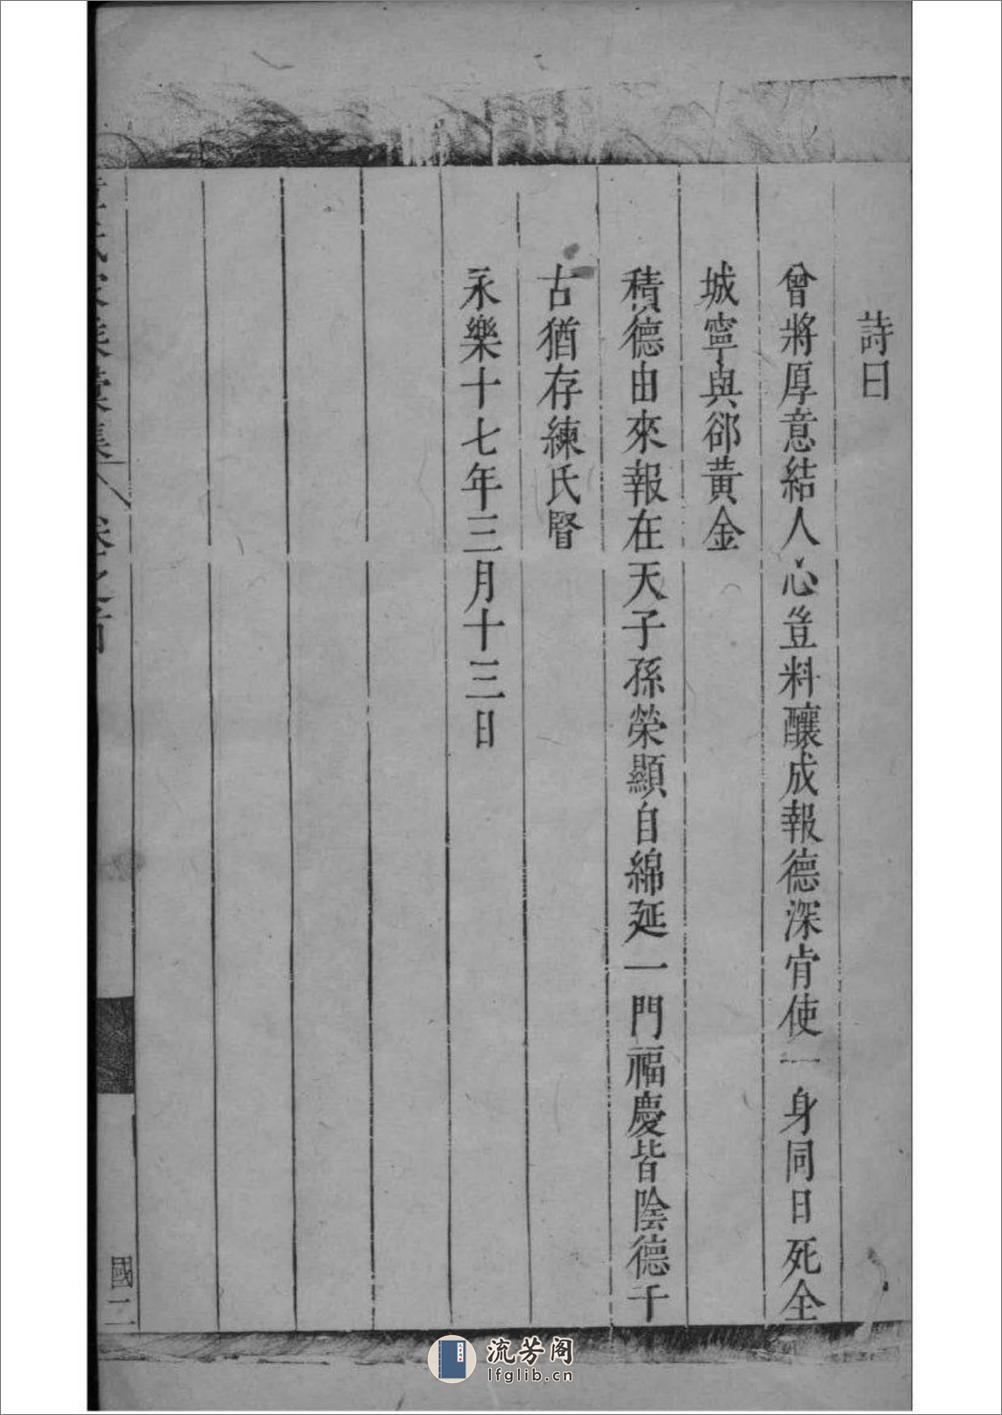 詩曰
曾將厚意結人心豈料釀成報德深肯使一身同日死全
城寧與郤黃金
積德由來報在天子孫榮顯自綿延一門福慶皆陰德千
古猶存練氏賢
永樂十七年三月十三日
卷之首
國二
流芳阁
lfglib.cn